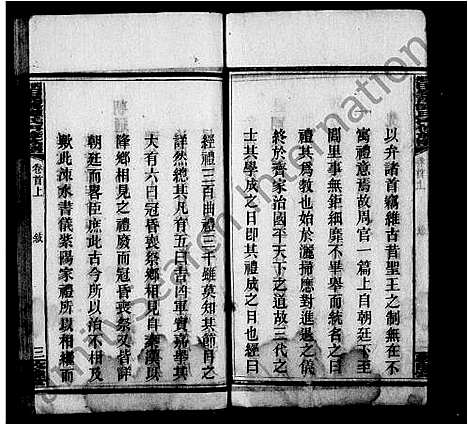 以弁諸首竊維古昔聖王之制無在不
寓禮意焉故周官一篇上自朝廷下至
閭里事無鉅細靡不畢舉而統名之曰
禮其爲教也始於灑掃應對進退之儀
終於齊家治國平天下之道故三代之
士其學成之日即其禮成之日也經曰
卷首上
經禮三百曲禮三千雖莫知其節目之
詳然總其凡有五曰吉凶軍賓嘉舉其
大有六曰冠昏喪祭鄉相見自秦漢以
降鄉相見之禮廢而冠昏喪祭又皆詳
朝廷而畧臣庶此古今所以治不相及
歟此涑水書儀紫陽家禮所以相繼而
卷首上
敍
三
Unity Search International